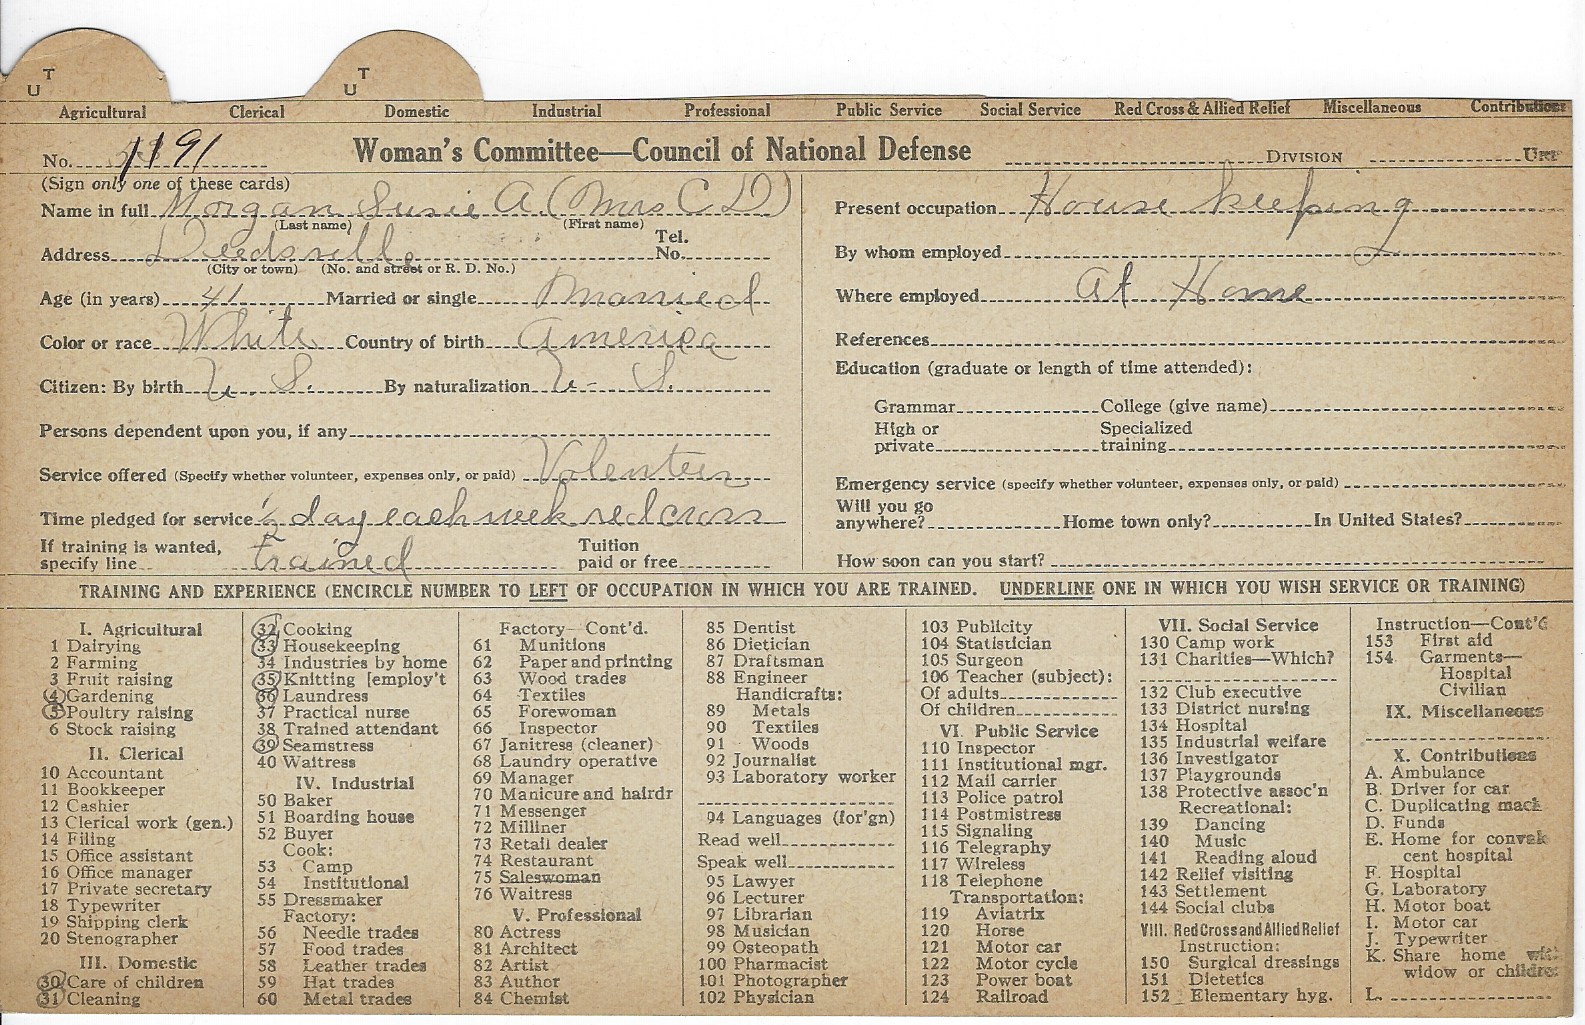 T U T U
Agricultural Clerical Domestic Industrial Professional Public Service Social Service Red Cross & Allied Relief Miscellaneous Contributions
No. 1191 Woman's Committee—Council of National Defense DIVISION UNIT
(Sign only one of these cards)
Name in full Morgan Susie A. (Mrs C D)
(Last name) (First name)
Address Deedsville Tel. No.
(City or town) (No. and street or R. D. No.)
Age (in years) 41 Married or single Married
Color or race White Country of birth America
Citizen: By birth U. S. By naturalization U- S.
Persons dependent upon you, if any
Service offered (Specify whether volunteer, expenses only, or paid) Volenteer
Time pledged for service ½ day each week red cross
If training is wanted, specify line trained Tuition paid or free
Present occupation House keeping
By whom employed
Where employed At Home
References
Education (graduate or length of time attended):
Grammar College (give name)
High or private Specialized training
Emergency service (specify whether volunteer, expenses only, or paid)
Will you go anywhere? Home town only? In United States?
How soon can you start?
TRAINING AND EXPERIENCE (ENCIRCLE NUMBER TO LEFT OF OCCUPATION IN WHICH YOU ARE TRAINED. UNDERLINE ONE IN WHICH YOU WISH SERVICE OR TRAINING)
I. Agricultural
1 Dairying
2 Farming
3 Fruit raising
4 Gardening
5 Poultry raising
6 Stock raising
II. Clerical
10 Accountant
11 Bookkeeper
12 Cashier
13 Clerical work (gen.)
14 Filing
15 Office assistant
16 Office manager
17 Private secretary
18 Typewriter
19 Shipping clerk
20 Stenographer
III. Domestic
30 Care of children
31 Cleaning
32 Cooking
33 Housekeeping
34 Industries by home
35 Knitting [employ't
36 Laundress
37 Practical nurse
38 Trained attendant
39 Seamstress
40 Waitress
IV. Industrial
50 Baker
51 Boarding house
52 Buyer
Cook:
53 Camp
54 Institutional
55 Dressmaker
Factory:
56 Needle trades
57 Food trades
58 Leather trades
59 Hat trades
60 Metal trades
Factory—Cont'd.
61 Munitions
62 Paper and printing
63 Wood trades
64 Textiles
65 Forewoman
66 Inspector
67 Janitress (cleaner)
68 Laundry operative
69 Manager
70 Manicure and hairdr
71 Messenger
72 Milliner
73 Retail dealer
74 Restaurant
75 Saleswoman
76 Waitress
V. Professional
80 Actress
81 Architect
82 Artist
83 Author
84 Chemist
85 Dentist
86 Dietician
87 Draftsman
88 Engineer
Handicrafts:
89 Metals
90 Textiles
91 Woods
92 Journalist
93 Laboratory worker
94 Languages (for'gn)
Read well
Speak well
95 Lawyer
96 Lecturer
97 Librarian
98 Musician
99 Osteopath
100 Pharmacist
101 Photographer
102 Physician
103 Publicity
104 Statistician
105 Surgeon
106 Teacher (subject):
Of adults
Of children
VI. Public Service
110 Inspector
111 Institutional mgr.
112 Mail carrier
113 Police patrol
114 Postmistress
115 Signaling
116 Telegraphy
117 Wireless
118 Telephone
Transportation:
119 Aviatrix
120 Horse
121 Motor car
122 Motor cycle
123 Power boat
124 Railroad
VII. Social Service
130 Camp work
131 Charities—Which?
132 Club executive
133 District nursing
134 Hospital
135 Industrial welfare
136 Investigator
137 Playgrounds
138 Protective assoc'n
Recreational:
139 Dancing
140 Music
141 Reading aloud
142 Relief visiting
143 Settlement
144 Social clubs
VIII. Red Cross and Allied Relief
Instruction:
150 Surgical dressings
151 Dietetics
152 Elementary hyg.
Instruction—Cont'd
153 First aid
154 Garments—
Hospital
Civilian
IX. Miscellaneous
X. Contributions
A. Ambulance
B. Driver for car
C. Duplicating mach
D. Funds
E. Home for convales
cent hospital
F. Hospital
G. Laboratory
H. Motor boat
I. Motor car
J. Typewriter
K. Share home with
widow or children
L.